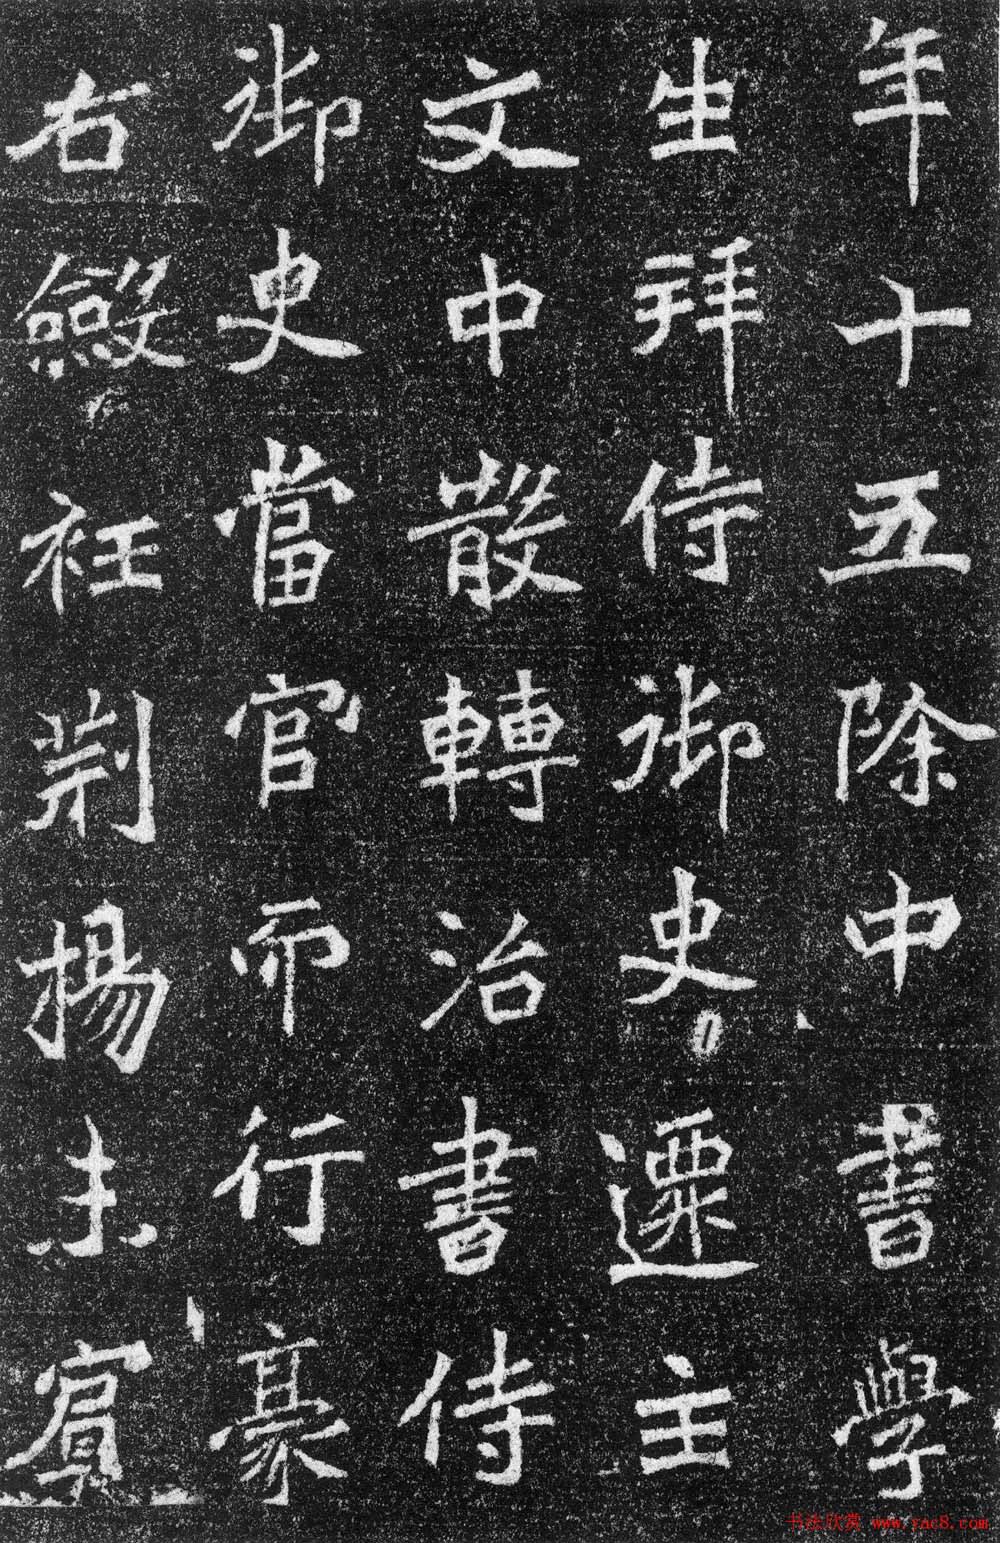 年十五除中書學
生拜侍御史遷主
文中散轉治書侍
御史當官而行豪
右斂衽荊揚未賓
书法欣赏 www.yac8.com